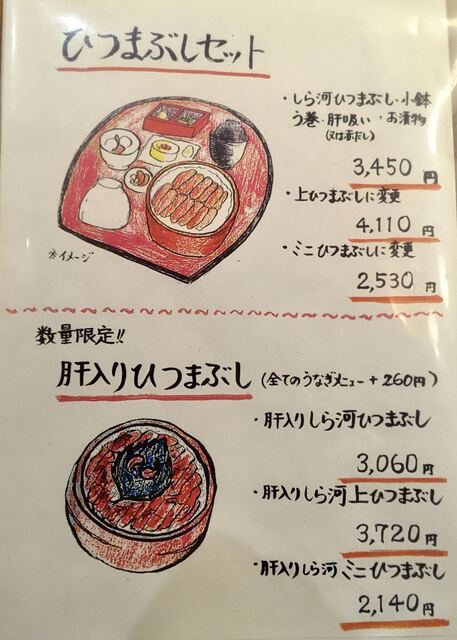 ひつまぶしセット
・しら河ひつまぶし・小鉢
う巻・肝吸い・お漬物
(又は赤だし)
3,450円
・上ひつまぶしに変更
4,110円
・ミニひつまぶしに変更
2,530円
※イメージ
数量限定!!
肝入りひつまぶし (全てのうなぎメニュー+260円)
・肝入りしら河ひつまぶし
3,060円
・肝入りしら河上ひつまぶし
3,720円
・肝入りしら河ミニひつまぶし
2,140円